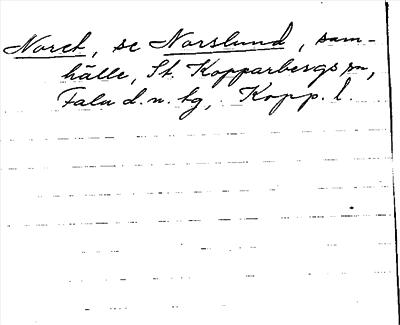 Noret, se Norslund, sam-
hälle, St. Kopparbergs sn,
Falu d. n. tg, Kopp. l.